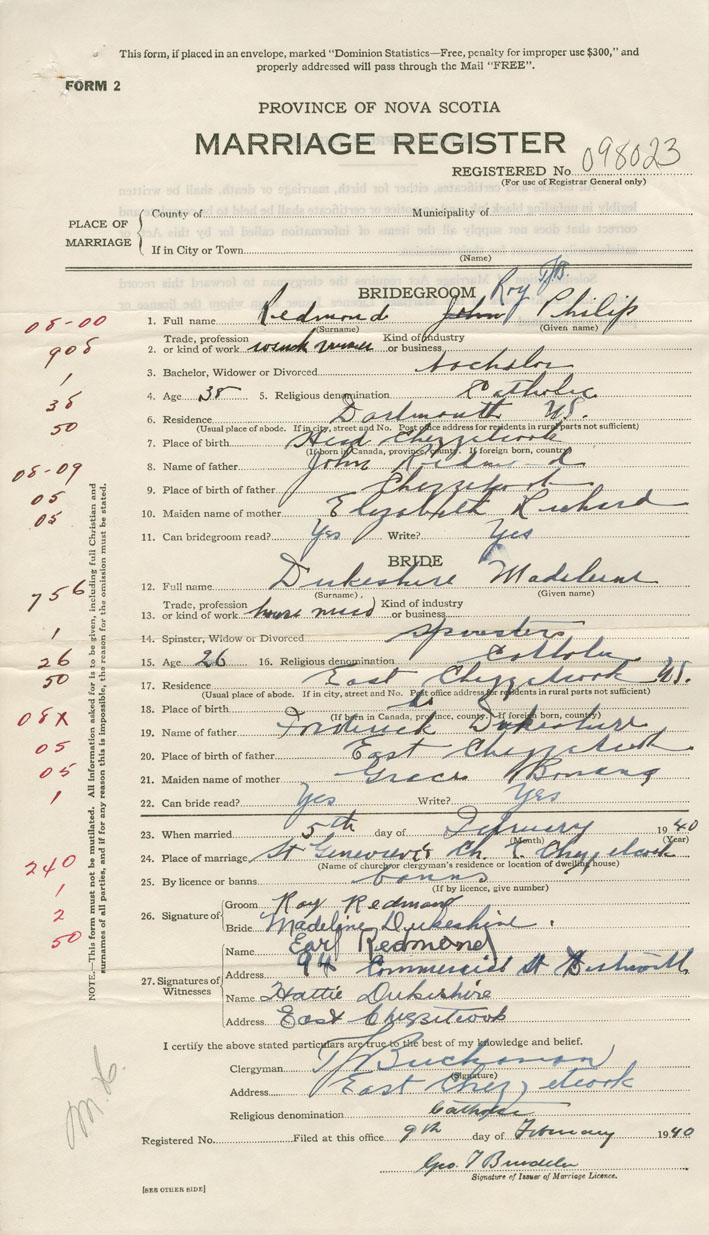 This form, if placed in an envelope, marked "Dominion Statistics—Free, penalty for improper use $300," and
properly addressed will pass through the Mail "FREE".
FORM 2
PROVINCE OF NOVA SCOTIA
MARRIAGE REGISTER
REGISTERED No. 098023
(For use of Registrar General only)
PLACE OF MARRIAGE
County of Municipality of
If in City or Town
(Name)
BRIDEGROOM
Roy T.J.B.
1. Full name Redmond John Philip
(Surname) (Given name)
08-00
Trade, profession Kind of industry
2. or kind of work or business
908
3. Bachelor, Widower or Divorced bachelor
1
4. Age 38 5. Religious denomination R Catholic
38
6. Residence Dartmouth N.S.
(Usual place of abode. If in city, street and No. Post office address for residents in rural parts not sufficient)
50
7. Place of birth Head Chezzetcook
(If born in Canada, province, county. If foreign born, country)
8. Name of father John Redmond
08-09
9. Place of birth of father Chezzetcook
05
10. Maiden name of mother Elizabeth Richard
05
11. Can bridegroom read? Yes Write? Yes
BRIDE
12. Full name Dukeshire Madeleine
(Surname) (Given name)
756
Trade, profession Kind of industry
13. or kind of work house maid or business
14. Spinster, Widow or Divorced spinster
1
15. Age 26 16. Religious denomination Catholic
26
17. Residence East Chezzetcook N.S.
(Usual place of abode. If in city, street and No. Post office address for residents in rural parts not sufficient)
50
18. Place of birth do
(If born in Canada, province, county. If foreign born, country)
08X
19. Name of father Frederick Dukeshire
20. Place of birth of father East Chezzetcook
05
21. Maiden name of mother Grace Bonang
05
22. Can bride read? Yes Write? Yes
1
23. When married 5th day of February 1940
(Month) (Year)
24. Place of marriage St Genevieve's Ch. E. Chezzetcook
(Name of church or clergyman's residence or location of dwelling house)
240
25. By licence or banns banns
(If by licence, give number)
1
26. Signature of
Groom Roy Redmond
Bride Madeline Dukeshire.
2
50
27. Signatures of Witnesses
Name Earl Redmond
Address 94 Commercial St Dartmouth
Name Hattie Dukeshire
Address East Chezzetcook
I certify the above stated particulars are true to the best of my knowledge and belief.
Clergyman T J Buchanan
(Signature)
Address East Chezzetcook
Religious denomination Catholic
Registered No. Filed at this office 9th day of February 1940
Geo. T
Signature of Issuer of Marriage Licence.
[SEE OTHER SIDE]
NOTE.—This form must not be mutilated. All information asked for is to be given, including full Christian and
surnames of all parties, and if for any reason this is impossible, the reason for the omission must be stated.